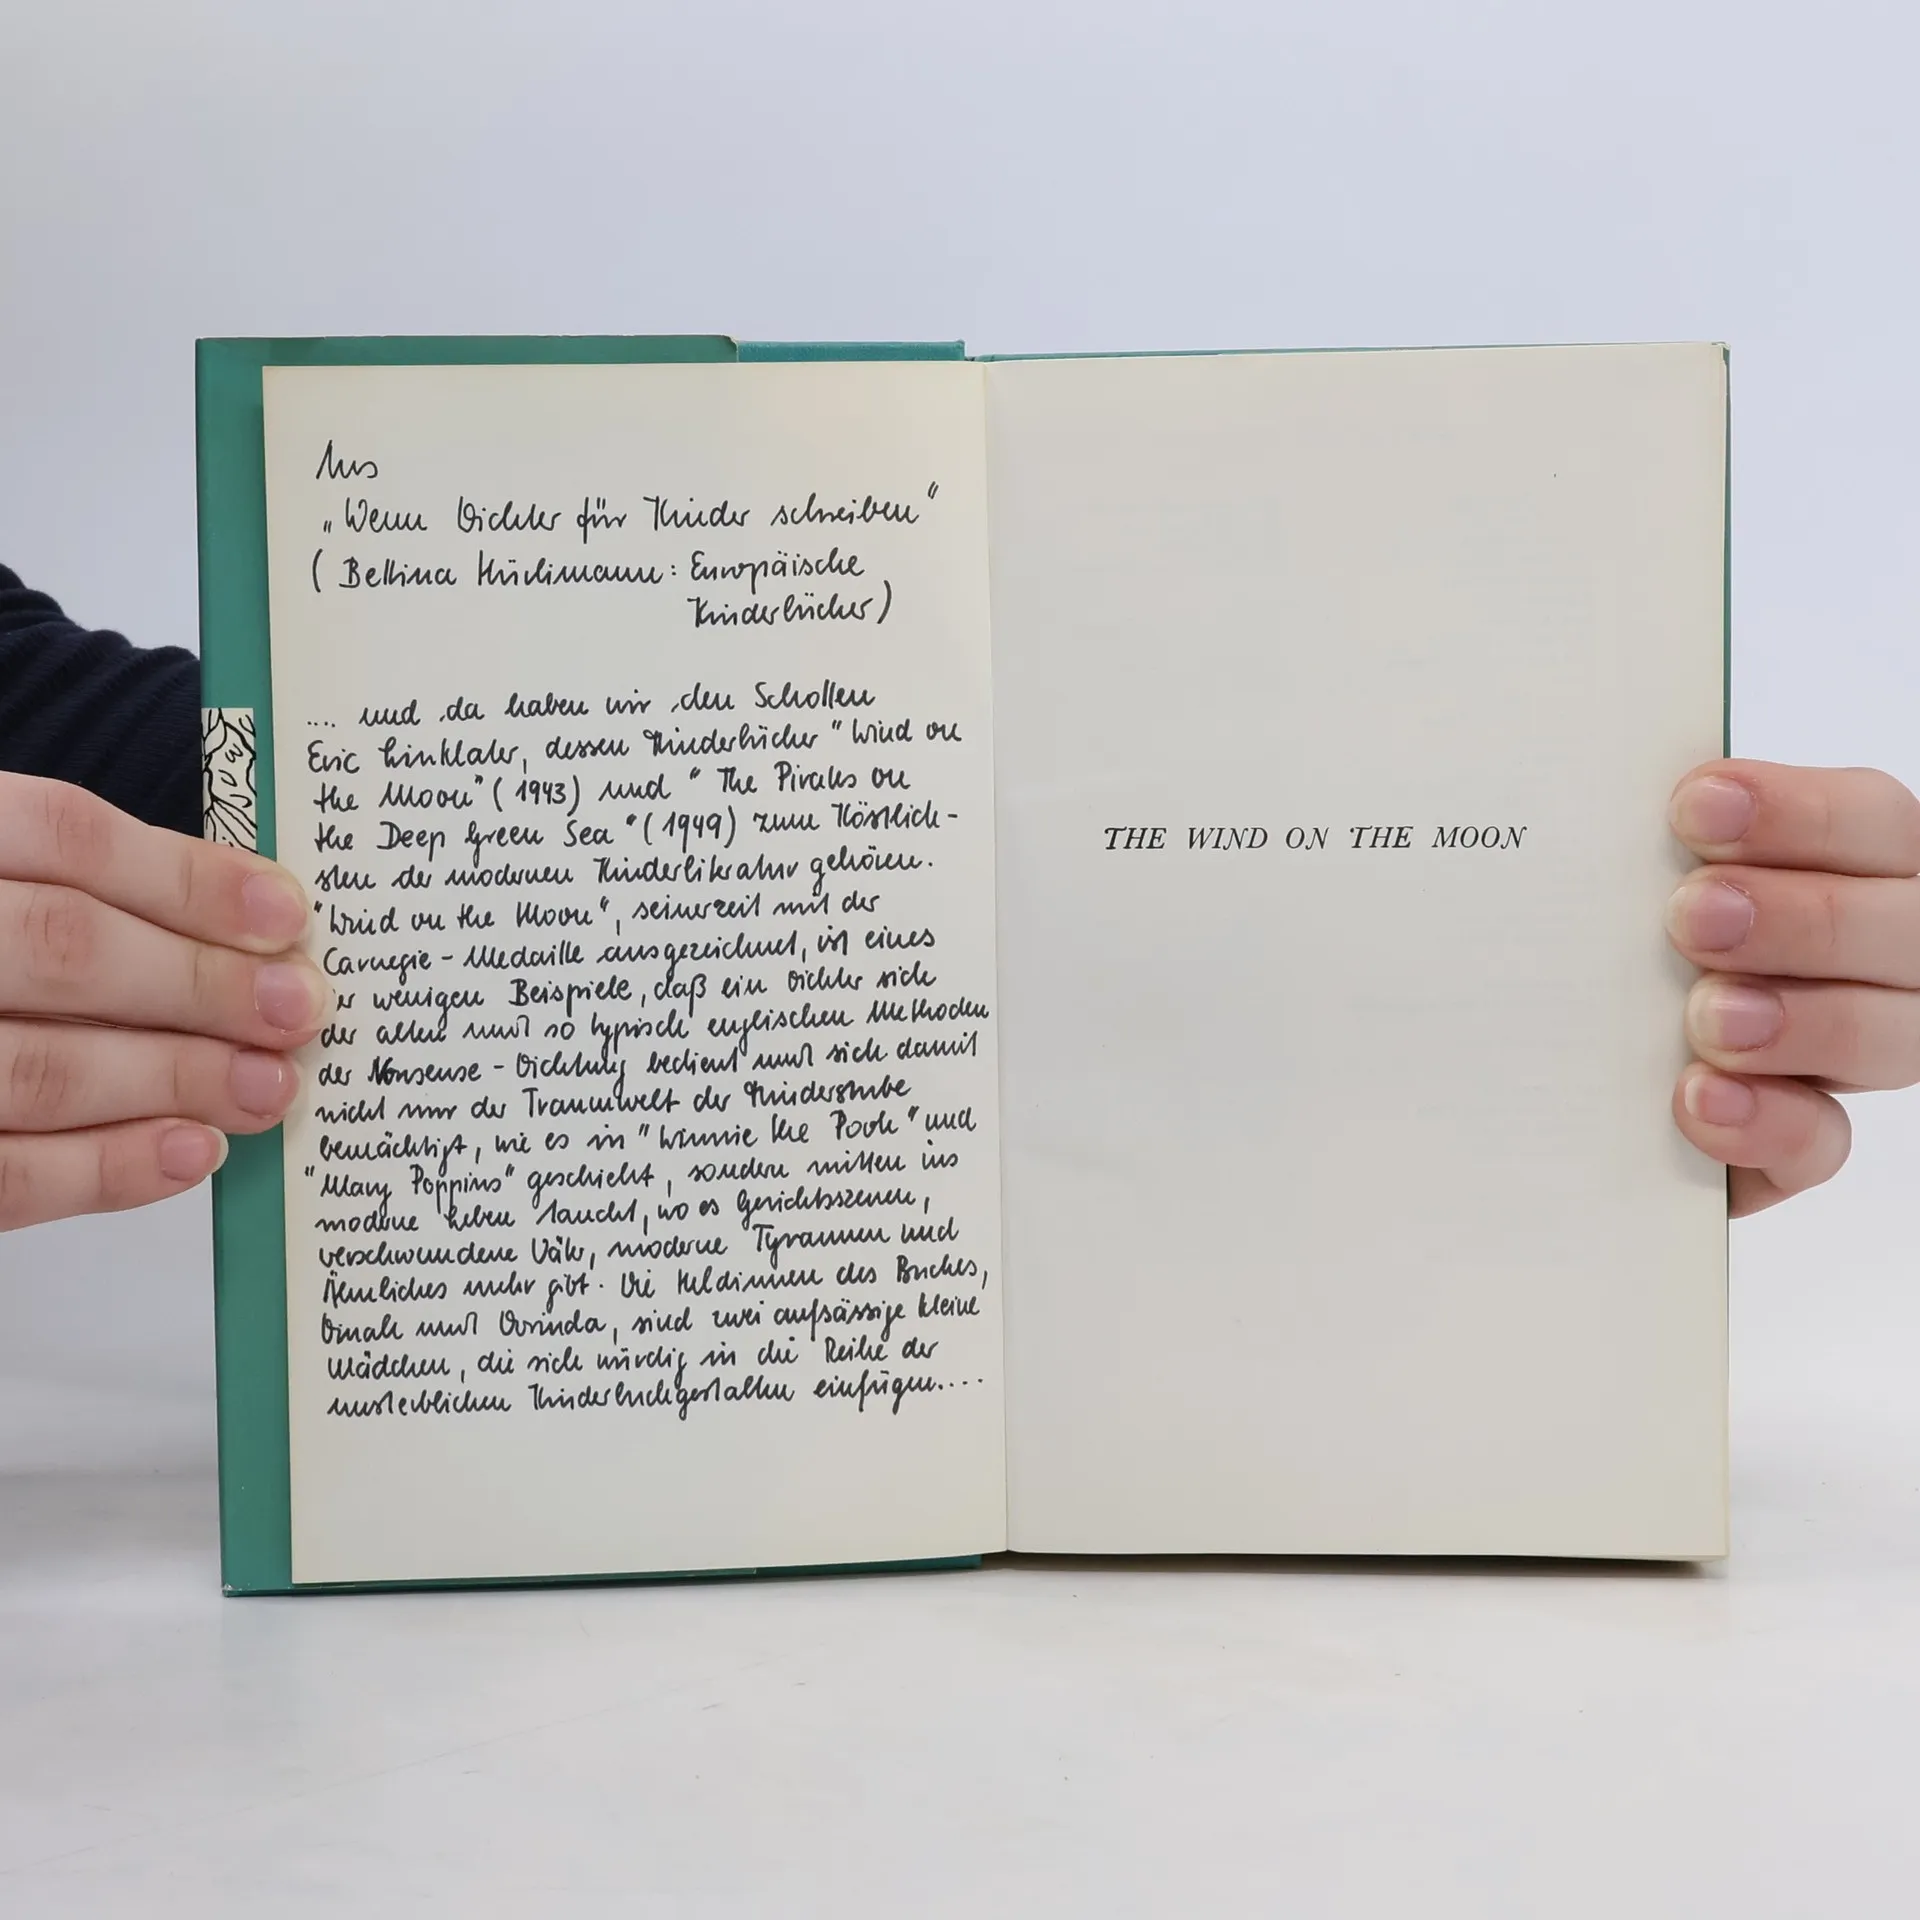 Aus
„Wenn Dichter für Kinder schreiben"
( Bettina Hürlimann: Europäische
Kinderbücher)
.... und da haben wir den Schotten
Eric Linklater, dessen Kinderbücher "Wind on
the Moon" ( 1943) und " The Pirates on
the Deep Green Sea "(1949) zum Köstlich-
sten der modernen Kinderliteratur gehören.
"Wind on the Moon", seinerzeit mit der
Carnegie - Medaille ausgezeichnet, ist eines
der wenigen Beispiele, daß ein Dichter sich
der alten und so typisch englischen Methoden
der Nonsense - Dichtung bedient und sich damit
nicht nur der Traumwelt der Kinderstube
bemächtigt, wie es in "Winnie the Pooh" und
"Mary Poppins" geschieht, sondern mitten ins
moderne Leben taucht, wo es Gerichtsszenen,
verschwundene Väter, moderne Tyrannen und
Ähnliches mehr gibt. Die Heldinnen des Buches,
Dinah und Dorinda, sind zwei aufsässige kleine
Mädchen, die sich würdig in die Reihe der
unsterblichen Kinderbuchgestalten einfügen....
THE WIND ON THE MOON